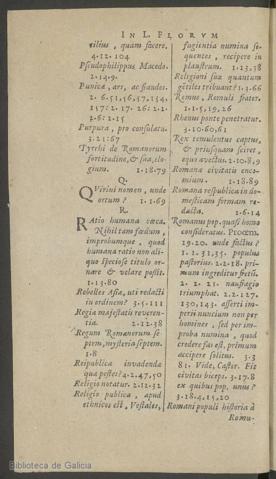 IN L. FLORVM
tilius, quam facere.
4.12.104
Pseudophilippus Macedo.
2.14.9.
Punica, ars, ac fraudes.
2.6.51,56,57,154,
157: 2.17.26: 2.2.
2.6: 2.15
Purpura, pro consulatu.
3.21.67
Tyrrhi de Romanorum
fortitudine, & sua, elo-
gium. 1.18.79
Q.
QVirini nomen, unde
ortum? 1.1.69
R.
RAtio humana cæca.
Nihil tam fœdum,
improbumque, quod
humana ratio non ali-
quo specioso titulo or-
nare & velare possit.
1.13.80
Rebelles Asiæ, uti redacti
in ordinem? 3.5.111
Regia majestatis reveren-
tia. 2.12.38
Regum Romanorum se-
ptem, mysteria septem.
1.8
Reipublicæ invadendæ
quæ pestes? 4.2.47,50
Religio notatur. 2.12.32
Religio publica, apud
ethnicos est, Vestales,
fugientia numina se-
quentes, recipere in
plaustrum. 1.13.18
Religioni suæ quantum
gentiles trebuant? 1.1.66
Remus, Romuli frater.
1.1.5,19,26
Rhenus ponte penetratur.
3.10.60,61
Rex temulentus captus,
& priusquam sciret,
equo avectus. 2.10.8,9
Romana civitatis enco-
mium. 1.18.89
Romana respublica in do-
mesticam firmam re-
dacta. 1.6.14
Romanus pop. quasi homo
consideratus. Proœm.
19.20. unde fictus?
1.1.31,35. populus
pastorius. 2.2.18. pri-
mum ingreditur fretũ.
2.2.21. naufragio
triumphat. 2.2.127,
130, 143. cæsti im-
perii nuncium non per
homines, sed per im-
proba numina, quod
credere fas est, primum
accipere solitus. 3.3
81. Vide, Cæsar. Fit
civitas biceps. 3.17.8
ex quibus pop. unus?
3.18.4,15,20
Romani populi historia à
Romu-
Biblioteca de Galicia